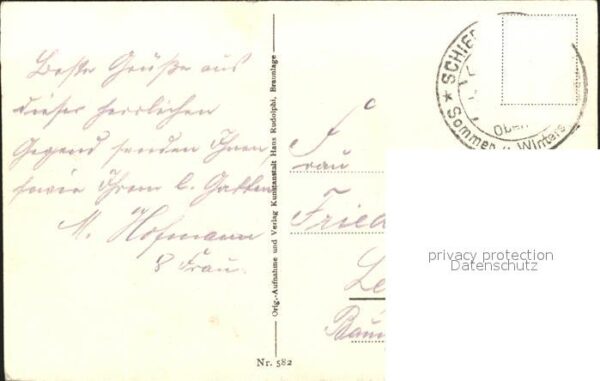 Beste Grüße aus
dieser herrlichen
Gegend senden Ihnen,
sowie Ihrem l. Gatten
M. Hofmann
& Frau.
Orig.-Aufnahme und Verlag Kunstanstalt Hans Rudolphi, Braunlage
Nr. 582
★ SCHIE
Ober
Sommer u. Winters
Frau
Fried
Le
privacy protection
Datenschutz